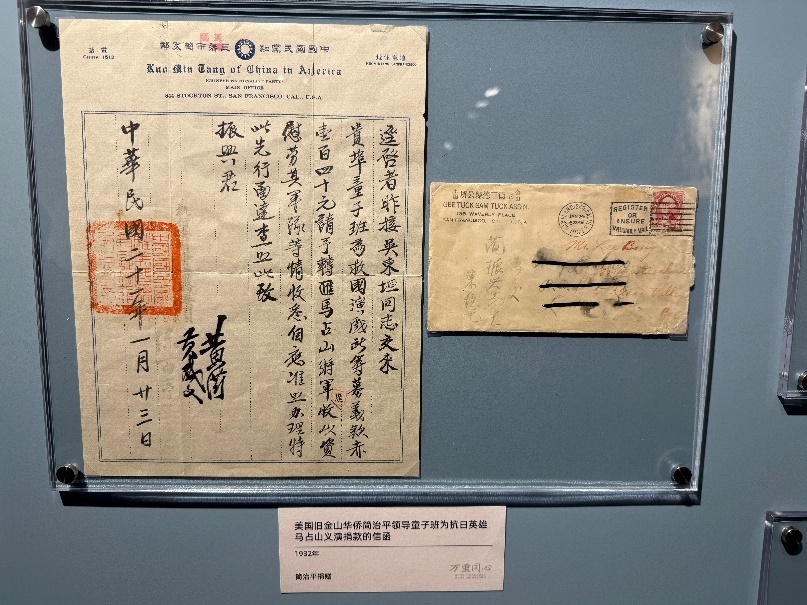 中國國民黨駐三藩市總支部
電話
China 1513
Kuo Min Tang of China in America
(CHINESE NATIONALIST PARTY)
MAIN OFFICE
844 STOCKTON ST., SAN FRANCISCO, CAL., U.S.A.
逕啓者昨接吳東垣同志交來
貴埠童子班為救國演戲所籌募義款赤
壹百四十元請予轉匯馬占山將軍收以資
慰勞其軍隊等情收叁個應准照辦理特
此先行函達查照此致
振興君
黃
中華民國二十一年一月廿三日
GEE TUCK SAM TUCK ASS'N.
WAVERLY PLACE
SAN FRANCISCO, U.S.A.
REGISTER
OR
INSURE
VALUABLE MAIL
美国旧金山华侨简治平领导童子班为抗日英雄
马占山义演捐款的信函
1932年
简治平捐赠
万里同心